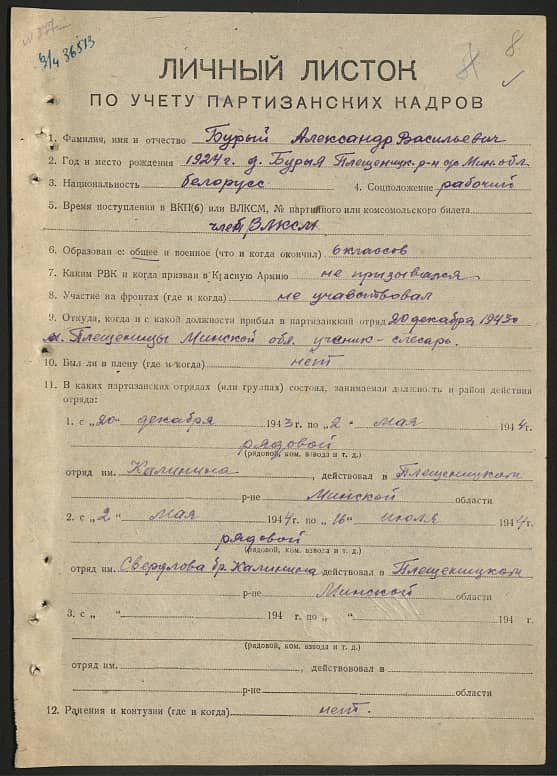 9/4 36513
8
ЛИЧНЫЙ ЛИСТОК
ПО УЧЕТУ ПАРТИЗАНСКИХ КАДРОВ
1. Фамилия, имя и отчество Бурый Александр Васильевич
2. Год и место рождения 1924 г. д. Бурыя Плещениц. р-н Мин. обл.
3. Национальность белорусс 4. Соцположение рабочий
5. Время поступления в ВКП(б) или ВЛКСМ, № партийного или комсомольского билета
член ВЛКСМ
6. Образован е: общее и военное (что и когда окончил) 6 классов
7. Каким РВК и когда призван в Красную Армию не призывался
8. Участие на фронтах (где и когда) не учавствовал
9. Откуда, когда и с какой должности прибыл в партизанкий отряд 20 декабря 1943 г
м. Плещеницы Минской обл. ученик-слесарь.
10. Был ли в плену (где и когда) нет
11. В каких партизанских отрядах (или группах) состоял, занимаемая должность и район действия
отряда:
1. с „20" декабря 1943 г. по „2" мая 1944 г.
рядовой
(рядовой, ком. взвода и т. д.)
отряд им. Калинина, действовал в Плещеницком
р-не Минской области
2. с „2" мая 1944 г. по „16" июля 1944 г.
рядовой
(рядовой, ком. взвода и т. д.)
отряд им. Свердлова бр. Калинина действовал в Плещеницком
р-не Минской области
3. с „ " 194 г. по „ " 194 г.
(рядовой, ком. взвода и т. д.)
отряд им. , действововал в
р-не области
12. Ранения и контузии (где и когда) нет.